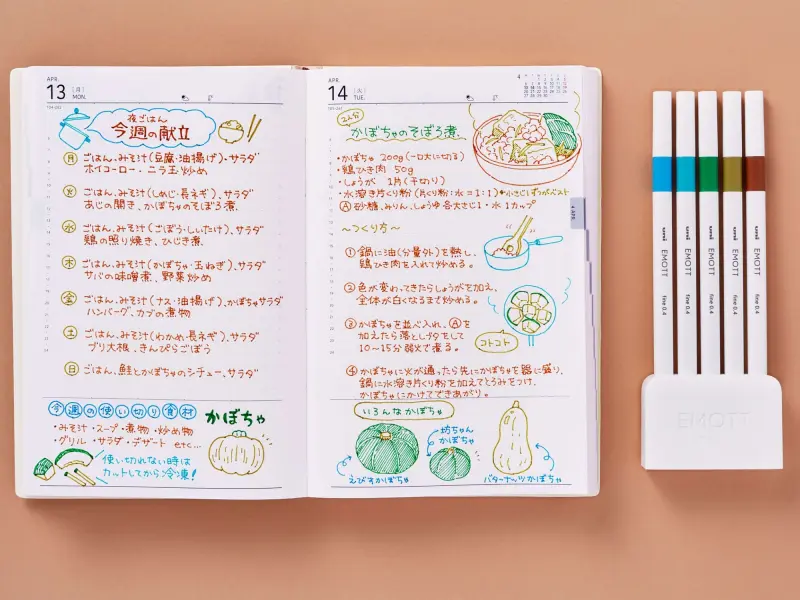 APR.
13 [月]
MON.
夜ごはん
今週の献立
月 ごはん、みそ汁(豆腐・油揚げ)・サラダ
ホイコーロー、ニラ玉炒め
火 ごはん、みそ汁(しめじ・長ネギ)、サラダ
あじの開き、かぼちゃのそぼろ煮
水 ごはん、みそ汁(ごぼう・しいたけ)、サラダ
鶏の照り焼き、ひじき煮
木 ごはん、みそ汁(かぼちゃ・玉ねぎ)、サラダ
サバの味噌煮、野菜炒め
金 ごはん、みそ汁(ナス・油揚げ)、かぼちゃサラダ
ハンバーグ、カブの煮物
土 ごはん、みそ汁(わかめ・長ネギ)、サラダ
ブリ大根、きんぴらごぼう
日 ごはん、鮭とかぼちゃのシチュー、サラダ
今週の使い切り食材
・みそ汁・スープ・煮物・炒め物
・グリル・サラダ・デザート etc...
かぼちゃ
使い切れない時は
カットしてから冷凍!
APR.
14 [火]
TUE.
4
2人分
かぼちゃのそぼろ煮
・かぼちゃ 200g(一口大に切る)
・鶏ひき肉 50g
・しょうが 1片(千切り)
・水溶き片くり粉(片くり粉:水=1:1)小さじ1ずつがベスト
Ⓐ砂糖、みりん、しょうゆ各大さじ1・水1カップ
〜つくり方〜
①鍋に油(分量外)を熱し、
鶏ひき肉を入れて炒める。
②色が変わってきたらしょうがを加え、
全体が白くなるまで炒める。
③かぼちゃを並べ入れ、Ⓐを
加えたら落としブタをして
10〜15分弱火で煮る。
コトコト
④かぼちゃに火が通ったら先にかぼちゃを器に盛り、
鍋に水溶き片くり粉を加えてとろみをつけ、
かぼちゃにかけてできあがり。
いろんなかぼちゃ
えびすかぼちゃ
坊ちゃん
かぼちゃ
バターナッツかぼちゃ
4 APR.
uni EMOTT fine 0.4
uni EMOTT fine 0.4
uni EMOTT fine 0.4
uni EMOTT fine 0.4
uni EMOTT fine 0.4
EMOTT